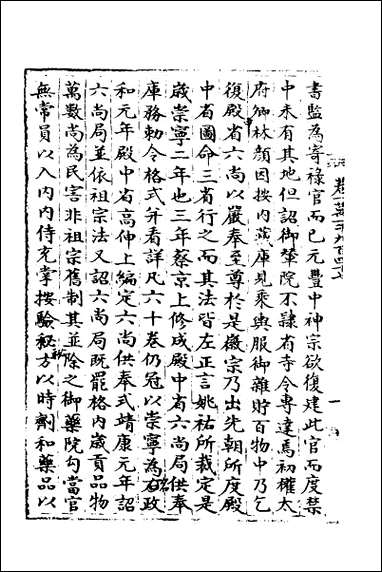 書監為寄祿官而已元豐中神宗欲復建此官而度禁
中未有其地但詔御輦院不隸省寺令專達焉初權太
府卿林顏因按內藏庫見乘輿服御雜貯百物中乃乞
復殿省六尚以嚴奉至尊於是徽宗乃出先朝所度殿
中省圖命三省行之而其法皆左正言姚祐所裁定是
歲崇寧二年也三年蔡京上修成殿中省六尚局供奉
庫務勅令格式并看詳凡六十卷仍冠以崇寧為名政
和元年殿中省高伸上編定六尚供奉式靖康元年詔
六尚局並依祖宗法又詔六尚局既罷格內歲貢品物
萬數尚為民害非祖宗舊制其並除之御藥院勾當官
無常員以入內內侍充掌按驗秘方以時劑和藥品以